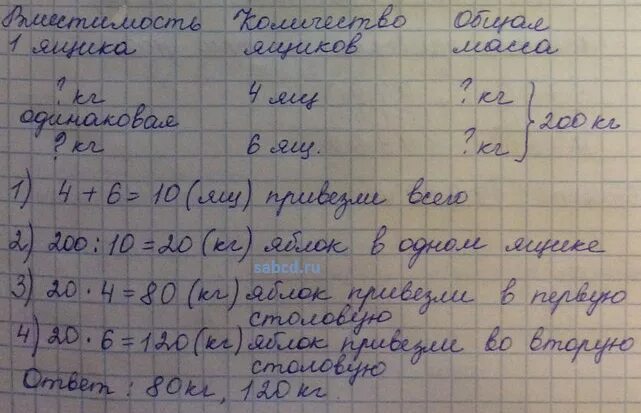 Вместимость Количество Общая
1 ящика ящиков масса
? кг 4 ящ ? кг
одинаковая 200 кг
? кг 6 ящ. ? кг
1) 4 + 6 = 10 (ящ) привезли всего
2) 200 : 10 = 20 (кг) яблок в одном ящике
sabcd.ru
3) 20 · 4 = 80 (кг) яблок привезли в первую
столовую
4) 20 · 6 = 120 (кг) яблок привезли во вторую
столовую
Ответ : 80 кг, 120 кг.